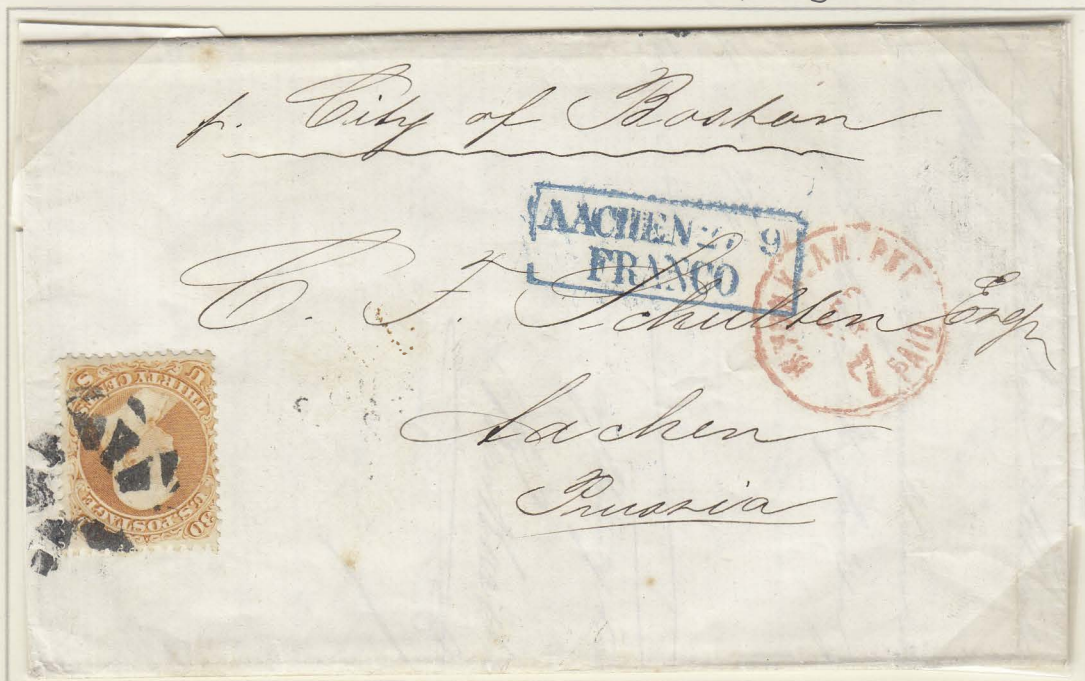 p. City of Boston
AACHEN 9
FRANCO
N. YORK AM. PKT
7
PAID
C. F. Schulten Esqr
Aachen
Prussia
U S
THIRTY CENTS
U.S. POSTAGE
30